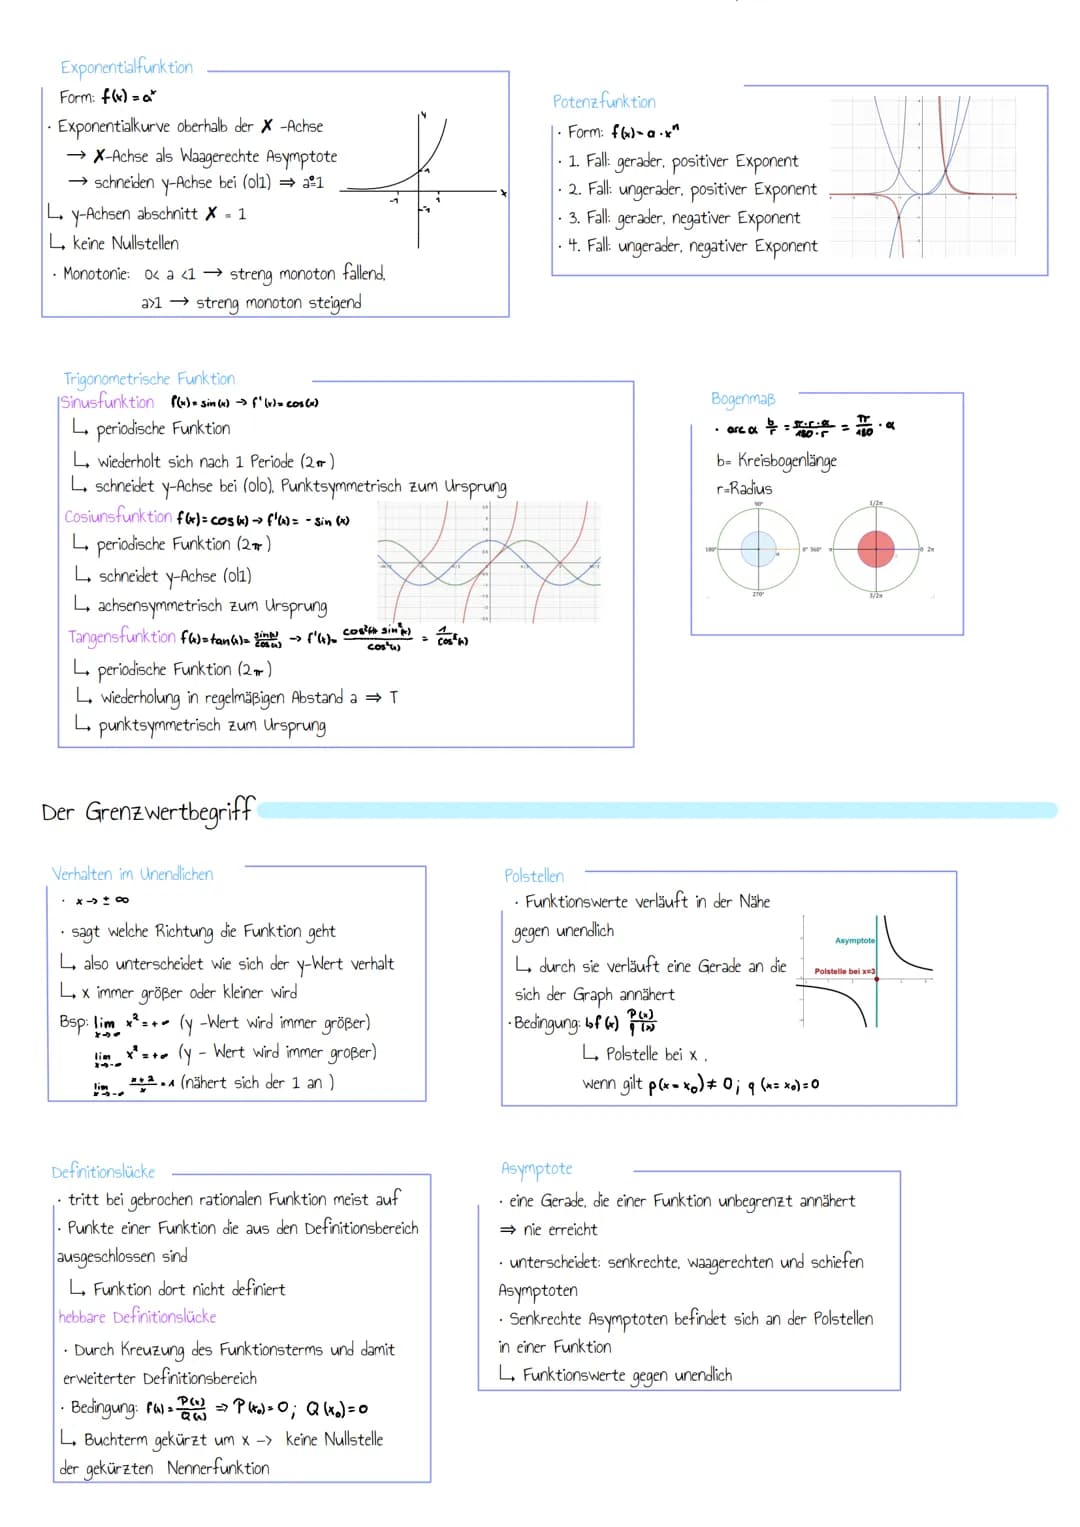 Exponentialfunktion
Form: f(x) = aˣ
· Exponentialkurve oberhalb der X -Achse
→ X-Achse als Waagerechte Asymptote
→ schneiden y-Achse bei (0|1) ⇒ a⁰=1
↳ y-Achsen abschnitt X = 1
↳ keine Nullstellen
· Monotonie: 0< a <1 → streng monoton fallend,
a>1 → streng monoton steigend
Potenzfunktion
· Form: f(x)= a · xⁿ
· 1. Fall: gerader, positiver Exponent
· 2. Fall: ungerader, positiver Exponent
· 3. Fall: gerader, negativer Exponent
· 4. Fall: ungerader, negativer Exponent
Trigonometrische Funktion
Sinusfunktion f(x) = sin(x) → f'(x)= cos(x)
↳ periodische Funktion
↳ wiederholt sich nach 1 Periode (2π)
↳ schneidet y-Achse bei (0|0), Punktsymmetrisch zum Ursprung
Cosiunsfunktion f(x)= cos(x) → f'(x)= - sin (x)
↳ periodische Funktion (2π)
↳ schneidet y-Achse (0|1)
↳ achsensymmetrisch zum Ursprung
Tangensfunktion f(x)=tan(x)= sin(x)/cos(x) → f'(x)= cos²(x)+ sin²(x)/cos²(x) = 1/cos²(x)
↳ periodische Funktion (2π)
↳ wiederholung in regelmäßigen Abstand a ⇒ T
↳ punktsymmetrisch zum Ursprung
Bogenmaß
· arc α b/r = π·r·α/180·r = π/180 · α
b= Kreisbogenlänge
r=Radius
90° 1/2π
180° 0° 360° π 0 2π
270° 3/2π
Der Grenzwertbegriff
Verhalten im Unendlichen
· x → ± ∞
· sagt welche Richtung die Funktion geht
↳ also unterscheidet wie sich der y-Wert verhalt
↳ x immer größer oder kleiner wird
Bsp: lim x² = +∞ (y -Wert wird immer größer)
x→∞
lim x² = +∞ (y - Wert wird immer großer)
x→-∞
lim x+2/x = 1 (nähert sich der 1 an )
x→-∞
Polstellen
· Funktionswerte verläuft in der Nähe
gegen unendlich
↳ durch sie verläuft eine Gerade an die
sich der Graph annähert
· Bedingung: f(x) P(x)/q(x)
↳ Polstelle bei x ,
wenn gilt p(x = x₀) ≠ 0; q (x= x₀)=0
Asymptote
Polstelle bei x=3
Definitionslücke
· tritt bei gebrochen rationalen Funktion meist auf
· Punkte einer Funktion die aus den Definitionsbereich
ausgeschlossen sind
↳ Funktion dort nicht definiert
hebbare Definitionslücke
· Durch Kreuzung des Funktionsterms und damit
erweiterter Definitionsbereich
· Bedingung: f(x) = P(x)/Q(x) ⇒ P(x₀)=0; Q(x₀)=0
↳ Buchterm gekürzt um x -> keine Nullstelle
der gekürzten Nennerfunktion
Asymptote
· eine Gerade, die einer Funktion unbegrenzt annähert
⇒ nie erreicht
· unterscheidet: senkrechte, waagerechten und schiefen
Asymptoten
· Senkrechte Asymptoten befindet sich an der Polstellen
in einer Funktion
↳ Funktionswerte gegen unendlich